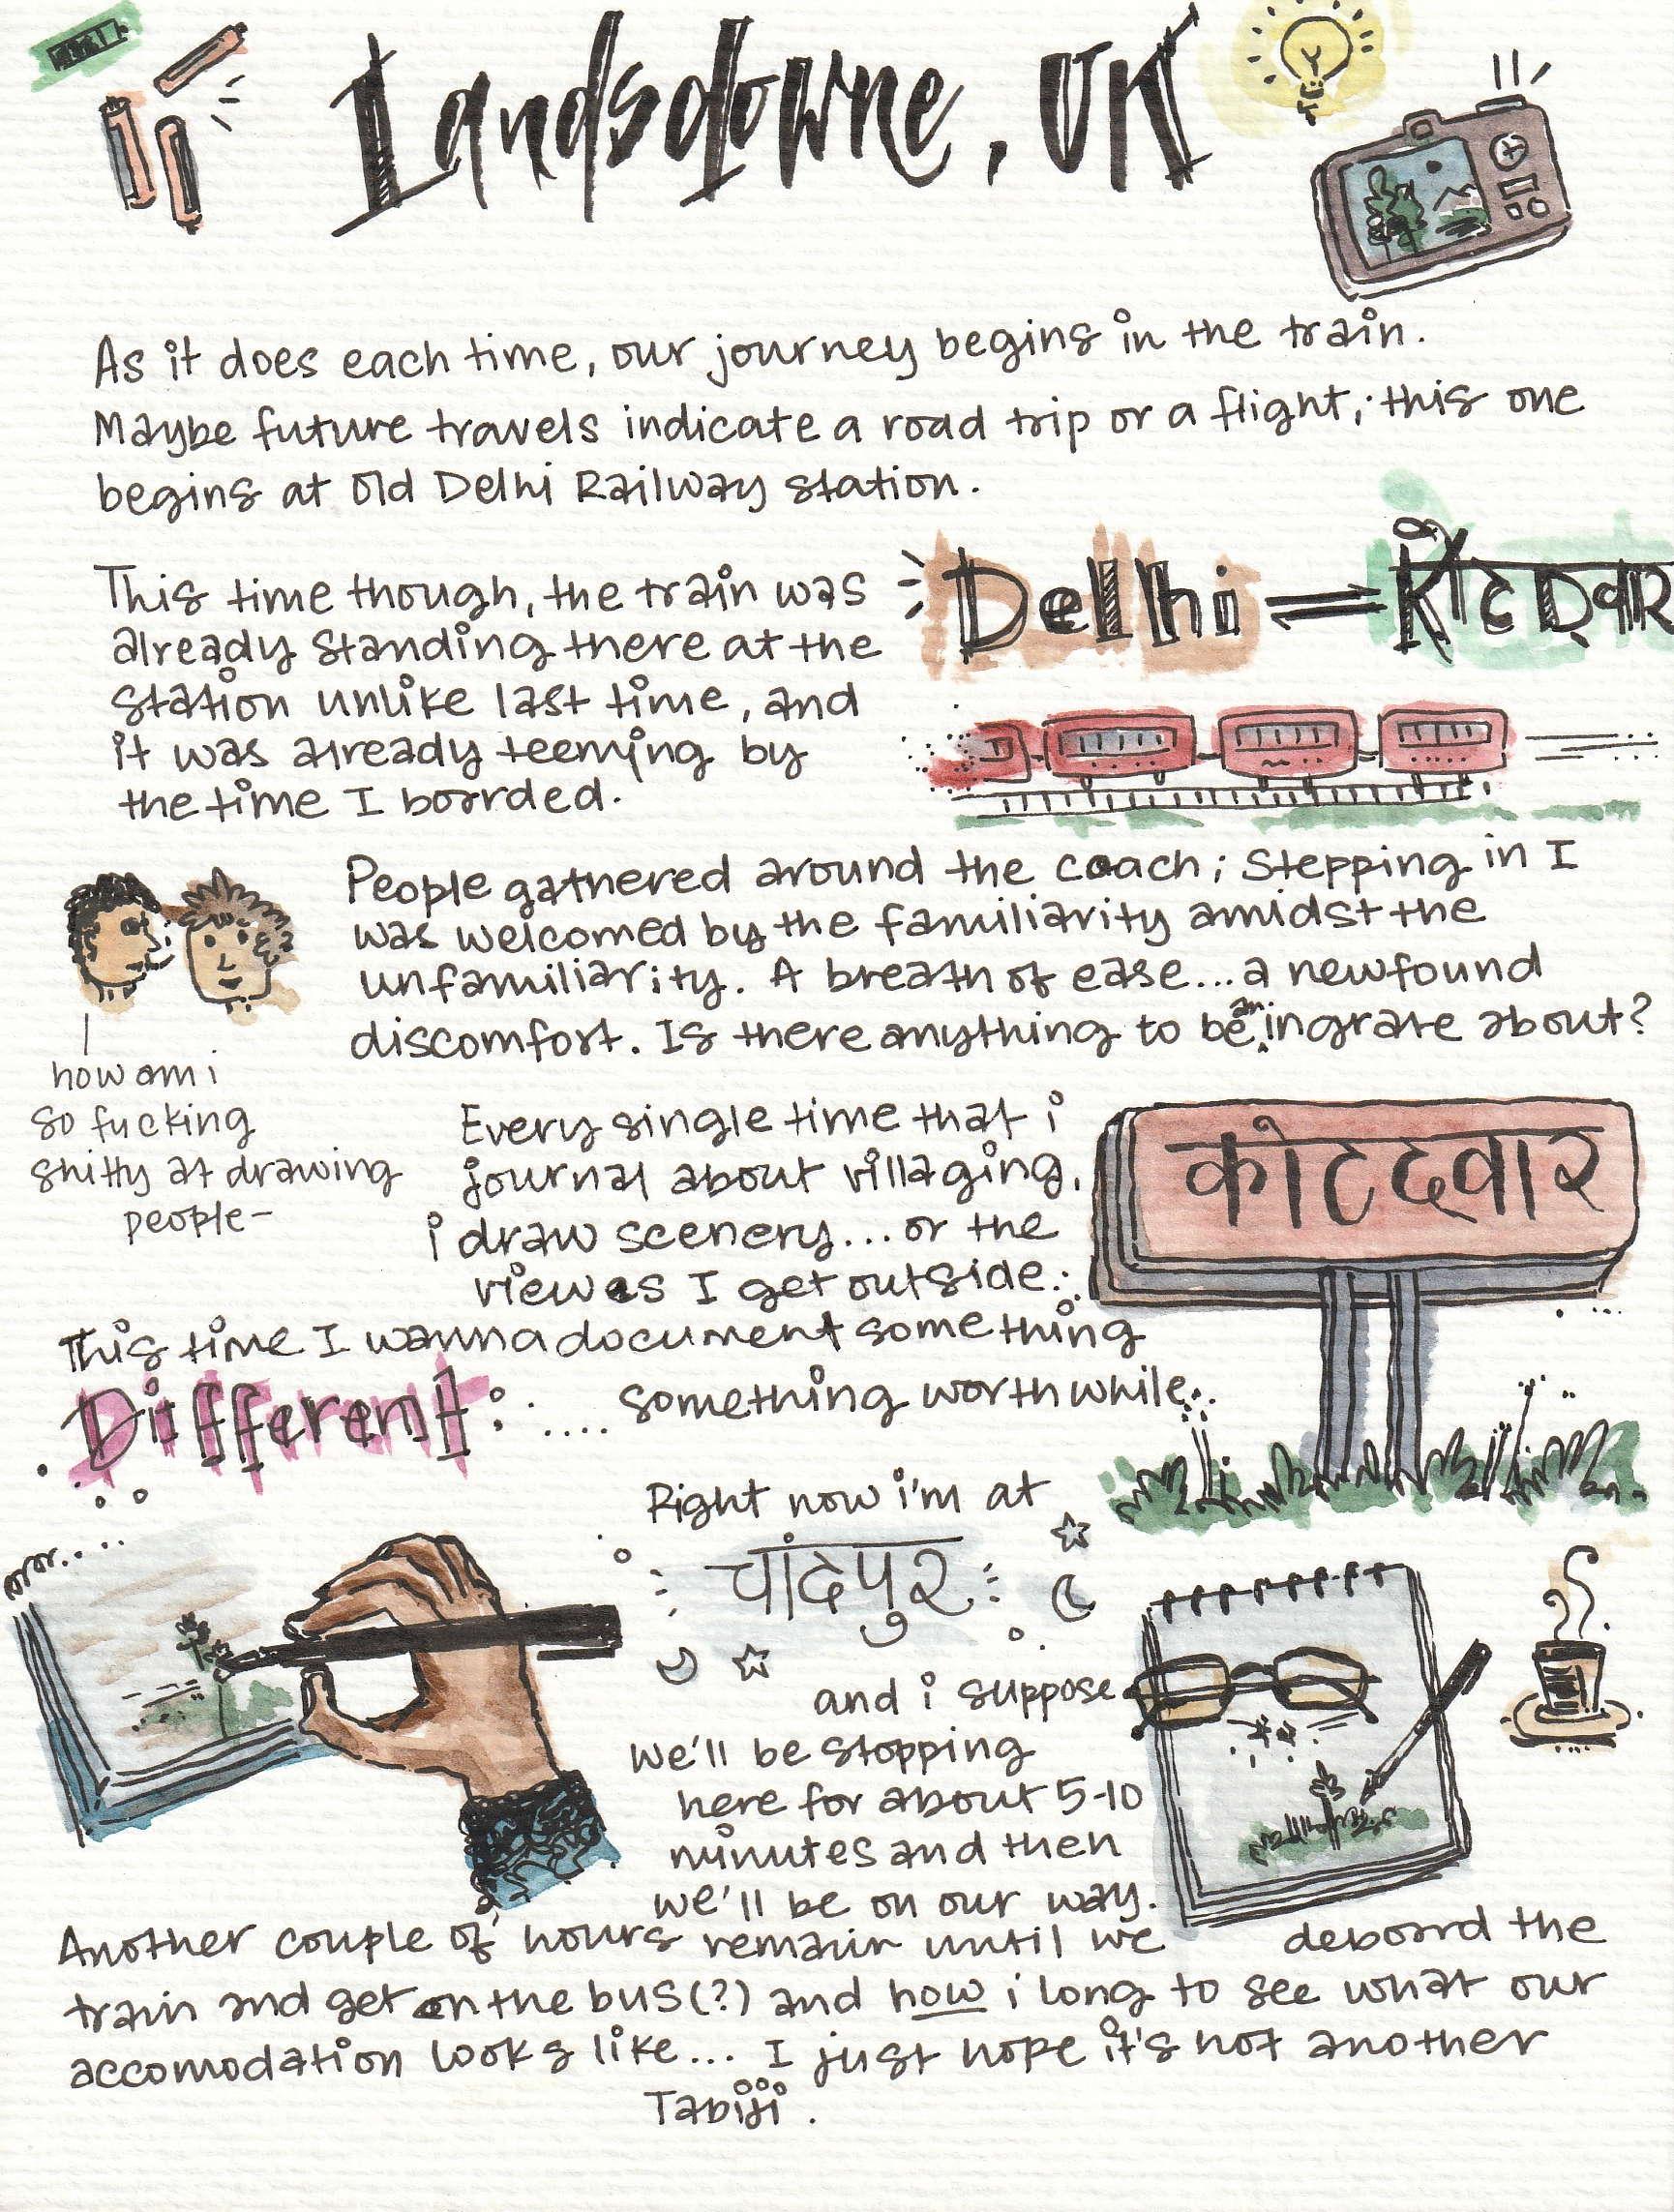 Landsdowne, UK
As it does each time, our journey begins in the train.
Maybe future travels indicate a road trip or a flight; this one
begins at Old Delhi Railway station.
Delhi = कोटद्वार
This time though, the train was
already standing there at the
station unlike last time, and
it was already teeming by
the time I boarded.
People gathered around the coach; Stepping in I
was welcomed by the familiarity amidst the
unfamiliarity. A breath of ease... a newfound
discomfort. Is there anything to be an ingrate about?
how am i
so fucking
shitty at drawing
people-
Every single time that i
journal about villaging,
i draw scenery... or the
views I get outside.
कोटदवार
This time I wanna document something
Different: .... something worthwhile..
Right now i'm at
चांदपुर
and i suppose
we'll be stopping
here for about 5-10
minutes and then
we'll be on our way.
Another couple of hours remain until we deboard the
train and get on the bus(?) and how i long to see what our
accomodation looks like... I just hope it's not another
Tabiji.